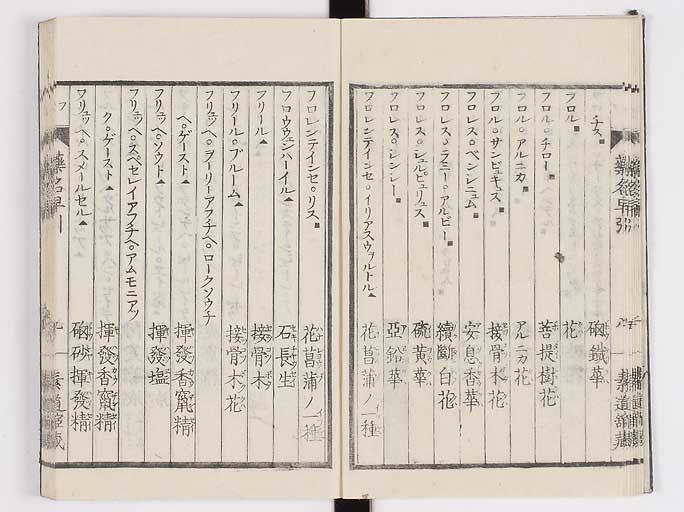 チス■ 磠鐵華
フロル■ 花
フロル。チロー■ 菩提樹花
フロル。アルニカ■ アルニカ花
フロル。サンビュキュス■ 接骨木花
フロレス。ベンゾニュム■ 安息香華
フロレス。ラミー。アルビー■ 續斷白花
フロレス。シュルピュリュス■ 硫黄華
フロレス。シンシー■ 亞鉛華
フロレンテインセ。イリアスウヲルトル▲ 花菖蒲ノ一種
フロレンテインセ。リス■ 花菖蒲ノ一種
フロウウェンハーイル▲ 石長生
フリール▲ 接骨木
フリール。ブルーム▲ 接骨木花
フリュッヘ。ヲーリーアフチヘ。ロークソウチ
ヘ。ゲースト▲ 揮發香竄精
フリュッヘ。ソウド▲ 揮發塩
フリュッヘ。スペセレイアフチヘ。アムモニアッ
ク。ゲースト▲ 揮發香竄精
フリュッヘ。スメールセル▲ 磠砂揮發精
フ
藥名早引
素道館藏